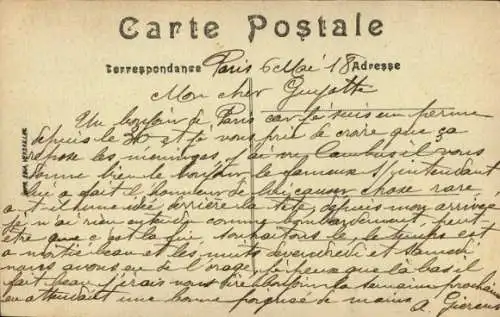 Carte Postale
Correspondance Adresse
Paris 6 Mai 18
Mon cher Guyotte
Un bonjour de Paris car je suis en perme
depuis le 30 et je vous prie de croire que ça
repose les méninges j'ai vu il vous
donne bien le bonjour le fameux S/intendant
lui a fait l'honneur de lui causer chose rare
a t-il une idée derrière la tête, depuis mon arrivée
je n'ai rien entendu comme bombardement, peut
être que c'est la fin, souhaitons le, le temps est
a moitié beau et les nuits de vendredi et Samedi
nous avons eu de l'orage, je pense que la bas il
fait beau, j'irais vous dire bonjour la semaine prochaine
en attendant une bonne poignée de mains